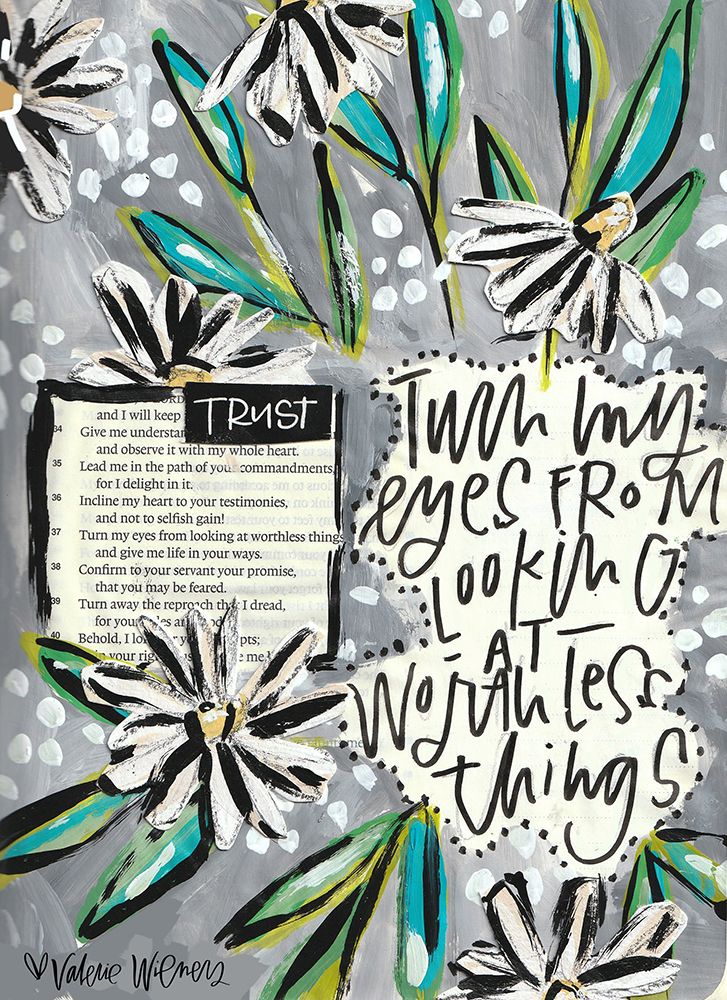 TRUST
and I will keep
34 Give me understan
and observe it with my whole heart.
35 Lead me in the path of your commandments,
for I delight in it.
36 Incline my heart to your testimonies,
and not to selfish gain!
37 Turn my eyes from looking at worthless things
and give me life in your ways.
38 Confirm to your servant your promise,
that you may be feared.
39 Turn away the reproach that I dread,
for your
40 Behold, I lo
in your rig
Turn my
eyes FROM
LOOKING
AT
Worthless
things
Valerie Wieners